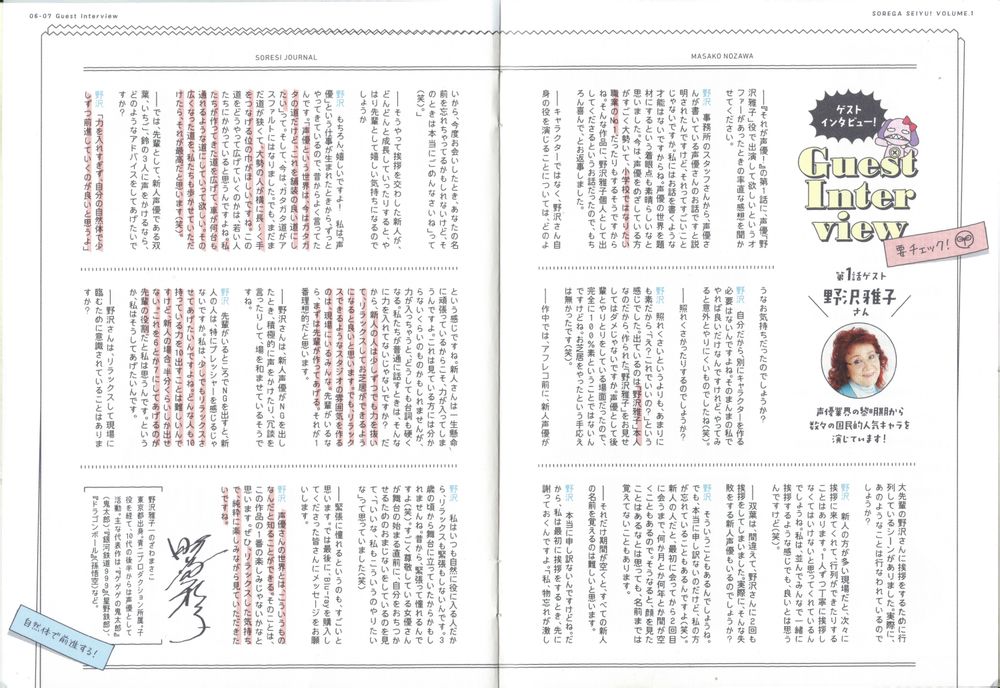 06-07 Guest Interview
SOREGA SEIYU! VOLUME.1
SORESI JOURNAL
MASAKO NOZAWA
ゲスト
インタビュー!
Guest
Inter
view
要チェック!
第1話ゲスト
野沢雅子
さん
声優業界の黎明期から
数々の国民的人気キャラを
演じています!
――『それが声優!』の第1話に、声優「野
沢雅子」役で出演して欲しいというオ
ファーがあったときの率直な感想を聞か
せてください。
野沢 事務所のスタッフさんから、声優さ
んが書いている声優さんのお話ですと説
明されたんですけど、それってすごいこと
じゃないですか。私にはお話を書くような
才能はないですからね。声優の世界を題
材にするという着眼点も素晴らしいなと
思いました。今は、声優をめざしている方
がすごく大勢いて、小学校ではなりたい
職業の
ね。そんな作品に、野沢雅子個人として出
してくださるというお話だったので、もち
ろん喜んで、とお返事しました。
――キャラクターではなく、野沢さん自
身の役を演じることについては、どのよ
うなお気持ちだったのでしょうか?
野沢 自分だから、別にキャラクターを作る
必要はないんですよね。そのまんまの私で
やれば良いだけなんですけれど、やってみ
ると意外とやりにくいものでしたね(笑)。
――照れくさかったりするのでしょうか?
野沢 照れくさいというよりも、あまりに
も素だから、「え?これでいいの?」という
感じでした。出ているのは「野沢雅子」本人
なのだから、作られた「野沢雅子」をお見せ
してはダメじゃないですか。声優として後
輩やレポをしている場面だったので、
完全に100%素ということではないん
ですけど、お芝居をやったという手応え
は無かったです(笑)。
――作中では、アフレコ前に、新人声優が
大先輩の野沢さんに挨拶をするために行
列しているシーンがありました。実際に、
あのようなことは行なわれているので
しょうか?
野沢 新人の方が多い現場だと、次々に
挨拶に来てくれて、行列ができたりする
ことはあります。一人ずつ丁寧に挨拶し
なくてはいけないと思ってくれているん
でしょうね。私は、並んでみんなで一緒に
挨拶するような感じでも、良いとは思う
んですけど(笑)。
――双葉は、間違えて、野沢さんに2回も
挨拶をしてしまいました。実際に、そんな失
敗をする新人声優もいるのでしょうか。
野沢 そういうこともあるんでしょうね。
でも、本当に申し訳ないのだけど、私の方
が忘れていることもあるんですよ(笑)。
新人の方だと、最初に会ってから2回目
に会うまで、何か月とか何年とか間が空
くこともあるので。そうなると、顔を見た
ことはあるなとは思っても、名前までは
覚えてないこともあります。
――それだけ期間が空くと、すべての新人
の名前を覚えるのは難しいと思います。
野沢 本当に申し訳ないんですけどね。だ
から、私は最初に挨拶をするとき、先に
謝っておくんですよ。「私、物忘れが激し
いから、今度お会いしたとき、あなたの名
前を忘れちゃってるかもしれないけど、そ
のときは本当にごめんなさいね」って
(笑)。
――そうやって挨拶を交わした新人が、
どんどんと成長していったりすると、や
はり先輩として嬉しい気持ちになるので
しょうか
野沢 もちろん、嬉しいですよー! 私は、「声
優」という仕事が生まれたときから、ずっと
やってきているので、昔からよく言ってた
んです。「声優という世界は、今はまだガタ
タの道だけど、これを舗装の良い道にし
たい」って。そして、今は、ガタガタ道がア
スファルトにはなりました。でも、まだま
だ道が狭くて、大勢の人が横に長〜く手
をつなげる位の巾がほしいですね。この
道をどうやって広げていくのかは、若い人
たちにかかっていると思うんですよね。私
たちが作ってきた道を広げて、車が何台も
通れるような道にしていって欲しい。その
広くなった道を、私たちも歩かせていただ
けたら、それが最高だと思います(笑)。
――では、先輩声優として、新人声優である双
葉、いちご、鈴の3人に声をかけるなら、
どのようなアドバイスをしてあげたいで
すか?
野沢 「力を入れすぎず、自分の自然体で少
しずつ前進していくのが良いと思うよ」
という感じですね。若い新人さんは一生懸命
に頑張っているからこそ、力が入ってしま
うんですよ。これは見ている方には分か
らないくらいのものかもしれませんが、
力が入っちゃうと、どうしても台詞も硬く
なる。私たちが普通に話すときは、そんな
に力を入れてないじゃないですか? だ
から、新人の人は少しずつでも力を抜い
て、そしてリラックスしてお芝居ができるよう
になると良いと思います。でも、リラック
スできるようなスタジオの雰囲気を作る
のは、現場にいるみんな。先輩がいるな
ら、まずは先輩が作ってあげる。それが一
番理想的だと思います。
――野沢さんは、新人声優がNGを出し
たとき、積極的に声をかけたり、冗談を
言ったりして、場を和ませているそうで
すね。
野沢 先輩がいるところでNGを出すと、新
人の人は、特にプレッシャーを感じるじゃ
ないですか。私は、少しでもリラックスさ
せてあげたいんですよね。どんな人も10
持っている力を10出すことは難しいんで
すけど、新人の場合、半分くらいしか出せ
ない。これを6とか7にしてあげるのが
先輩の役割だと私は思うんです。という
か、私はそうしてあげたいんです。
――野沢さんは、リラックスして現場に
臨むために意識されていることはありま
すか?
野沢 私はいつも自然に役に入る人だか
ら、リラックスも緊張もしないんです。3
歳の頃から舞台に立っていたからかもし
れませんね。昔から、緊張って憧れるんで
すよ(笑)。すごく尊敬している女優さん
が舞台の始まる直前に、自分をおちつか
せるためのおまじないをしているのを見
て、「いいな、私もこういうのやりたい
な」って思っていました(笑)。
――緊張に憧れるというのも、すごいと
思います。では最後に、「Blu-ray」を購入し
てくださった皆さんにメッセージをお願
いします。
野沢 声優さんの世界とは、こういうもの
なんだと知ることができる。そのことは、
この作品の1番の楽しみじゃないかなと
思います。ぜひ、リラックスした気持ち
で、純粋に楽しみながら見ていただきた
いですね。
野沢雅子(のざわまさこ)
東京都出身、青二プロダクション所属。子
役を経て、10代の後半からは声優として
活動。主な代表作は、『ゲゲゲの鬼太郎』
(鬼太郎)、『銀河鉄道999』(星野鉄郎)、
『ドラゴンボール』(孫悟空)など。
自然体で前進する!